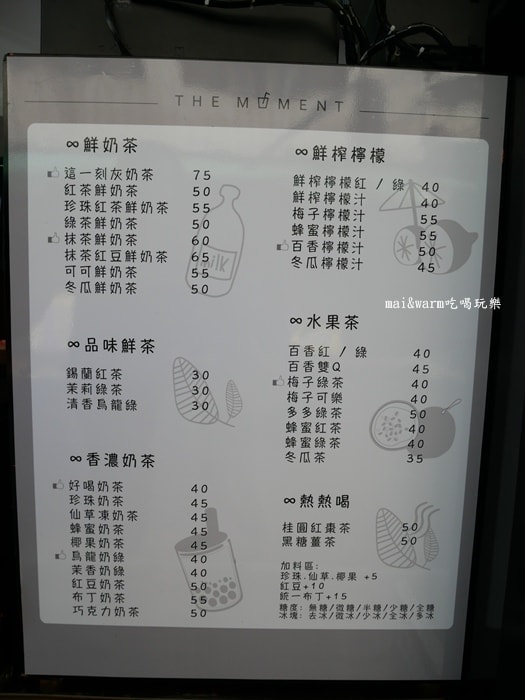 THE MOMENT
∞鮮奶茶
這一刻灰奶茶 75
紅茶鮮奶茶 50
珍珠紅茶鮮奶茶 55
綠茶鮮奶茶 50
抹茶鮮奶茶 60
抹茶紅豆鮮奶茶 65
可可鮮奶茶 55
冬瓜鮮奶茶 50
milk
∞品味鮮茶
錫蘭紅茶 30
茉莉綠茶 30
清香烏龍綠 30
∞香濃奶茶
好喝奶茶 40
珍珠奶茶 45
仙草凍奶茶 45
蜂蜜奶茶 45
椰果奶茶 45
烏龍奶綠 40
茉香奶綠 40
紅豆奶茶 50
布丁奶茶 55
巧克力奶茶 50
∞鮮榨檸檬
鮮榨檸檬紅 / 綠 40
鮮榨檸檬汁 40
梅子檸檬汁 55
蜂蜜檸檬汁 55
百香檸檬汁 50
冬瓜檸檬汁 45
mai&warm吃喝玩樂
∞水果茶
百香紅 / 綠 40
百香雙Q 45
梅子綠茶 40
梅子可樂 40
多多綠茶 50
蜂蜜紅茶 40
蜂蜜綠茶 40
冬瓜茶 35
∞熱熱喝
桂圓紅棗茶 50
黑糖薑茶 50
加料區:
珍珠.仙草.椰果 +5
紅豆+10
統一布丁+15
糖度: 無糖/微糖/半糖/少糖/全糖
冰塊: 去冰/微冰/少冰/全冰/多冰